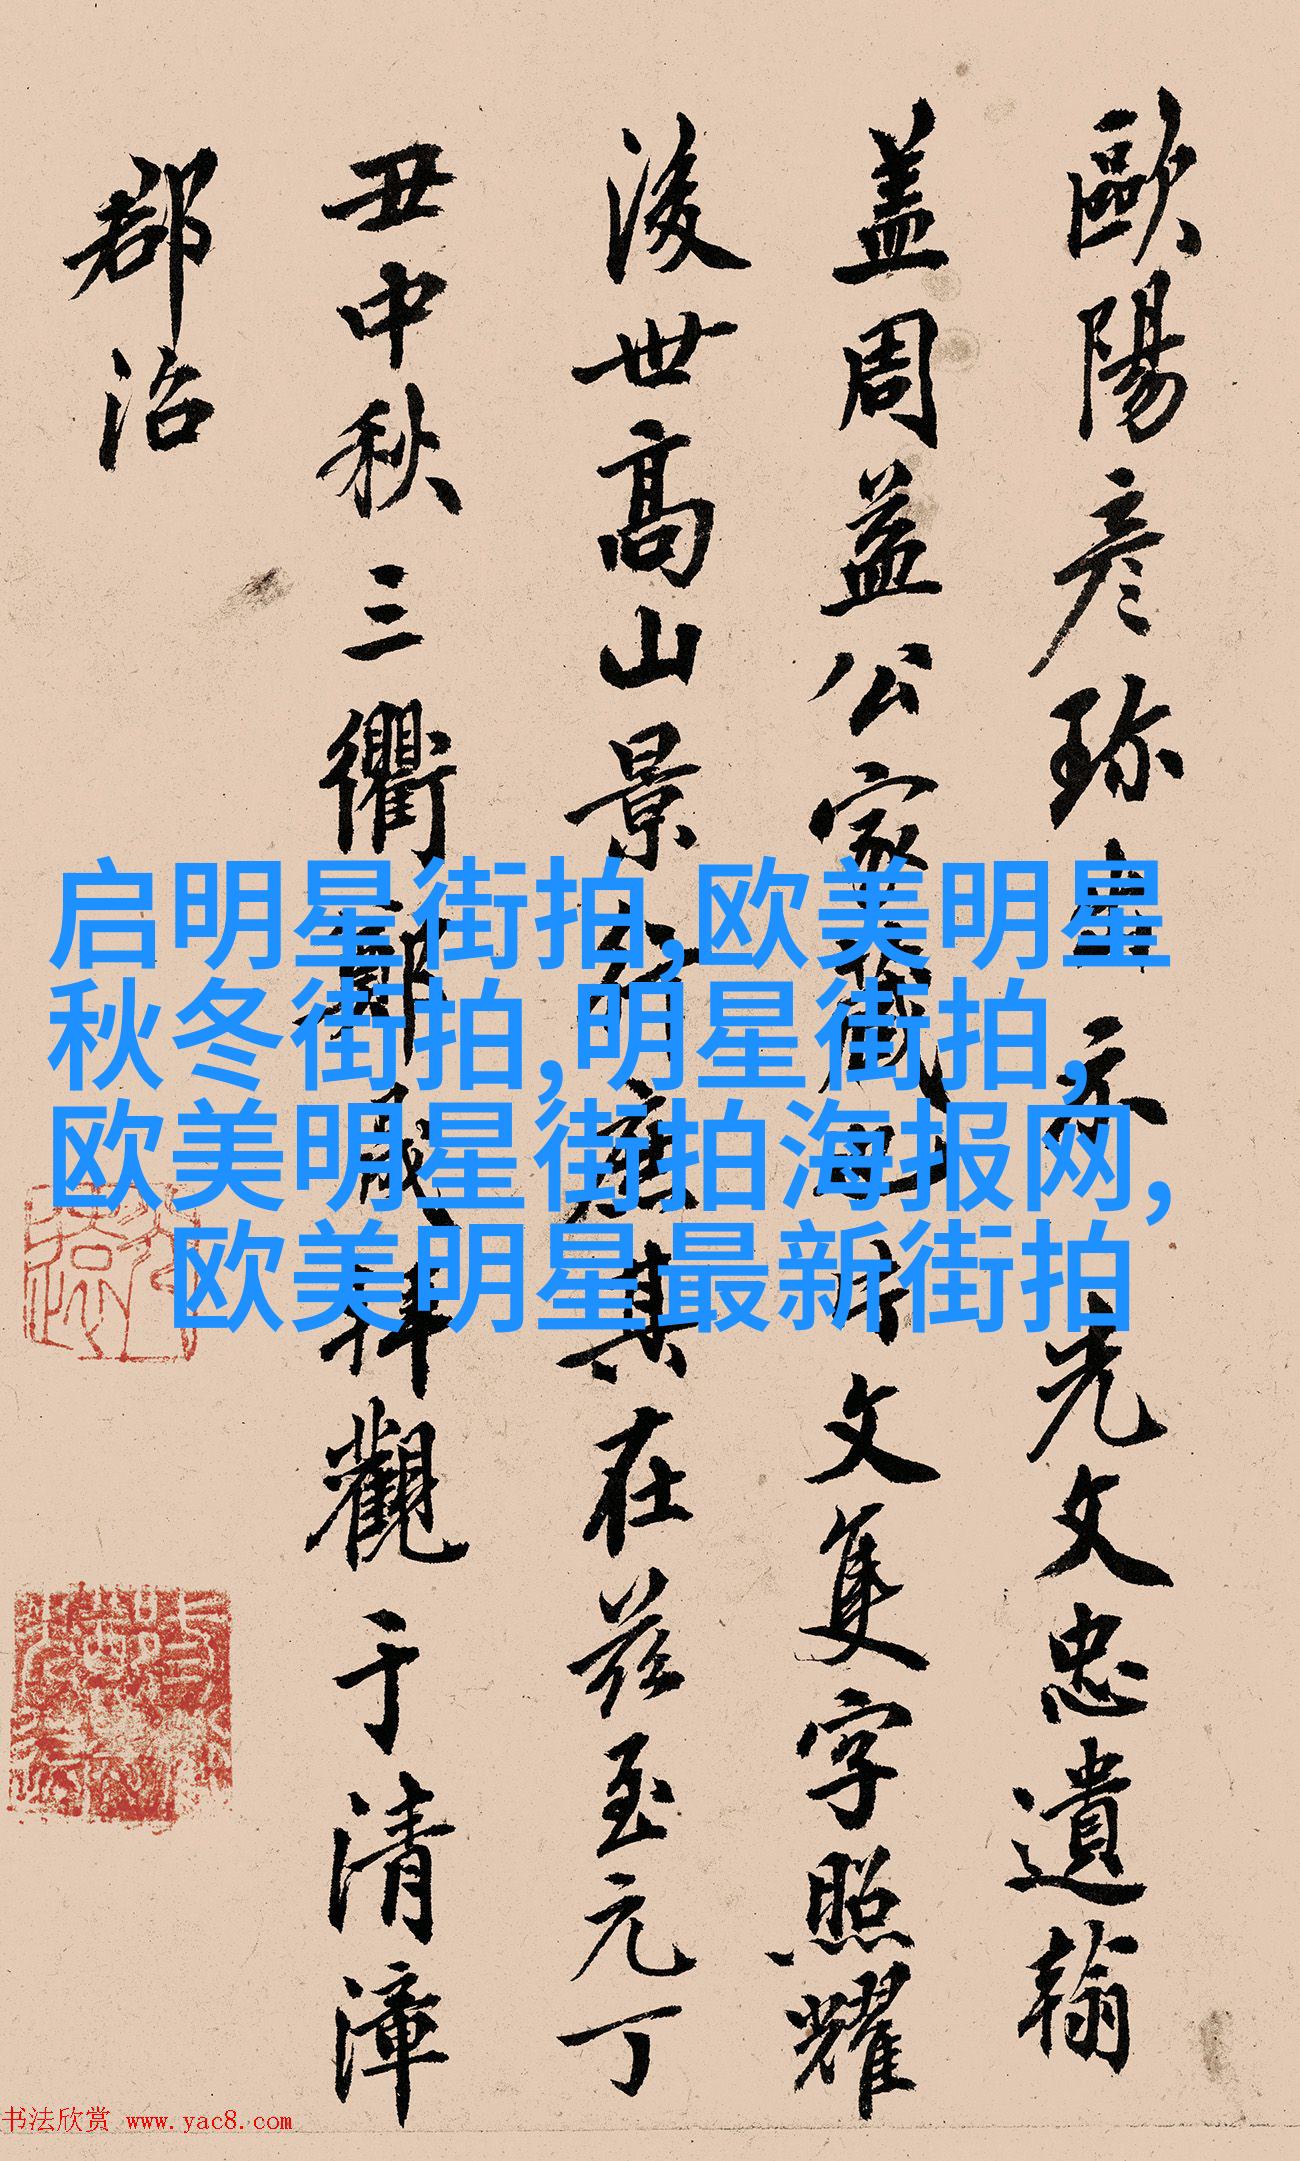 歐陽彥珍示先文忠遺翰
盖周益公家藏也片文隻字照耀
後世高山景行庶其在兹至元丁
丑中秋三衢鄭晟拜觀于清漳
郡治
启明星街拍,欧美明星
秋冬街拍,明星街拍,
欧美明星街拍海报网,
欧美明星最新街拍
书法欣赏 www.yac8.com